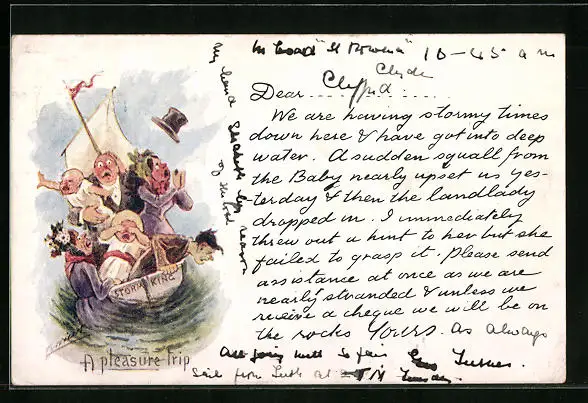 on board "St Rowena" 10-45 a m
Clyde
Dear ..... Clifford .....
We are having stormy times
down here & have got into deep
water. A sudden squall from
the Baby nearly upset us yes-
terday & then the landlady
dropped in. I immediately
threw out a hint to her but she
failed to grasp it. Please send
assistance at once as we are
nearly stranded & unless we
receive a cheque we will be on
the rocks Yours. As always
All going well so far Turner.
Sail from Leith at
My hand
by reason
of
STORM KING
A pleasure trip